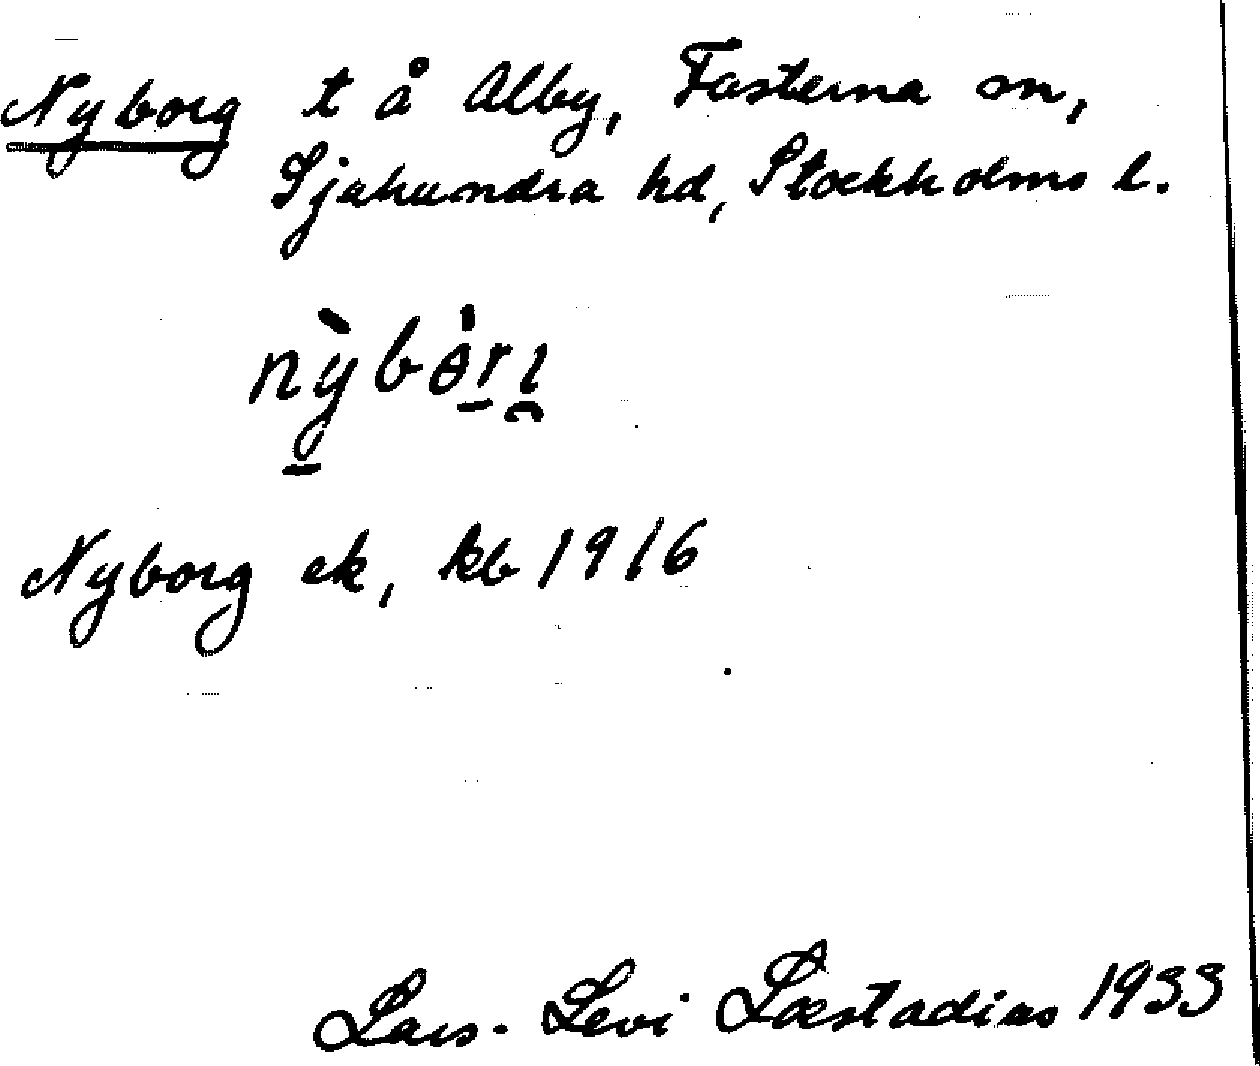 Nyborg t å Alby, Fasterna sn,
Sjuhundra hd, Stockholms l.
nỳbɵ̀rı
Nyborg ek, kb 1916
Lars-Levi Læstadius 1933